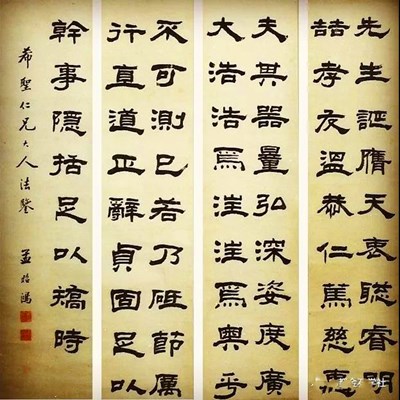 先生誕膺天衷聡睿明
喆孝友溫恭仁篤慈惠
夫其器量弘深姿度廣
大浩浩焉汪汪焉奧乎
不可測已若乃砥節厲
行直道正辭貞固足以
幹事隱括足以矯時
希聖仁兄大人法鑒
孟